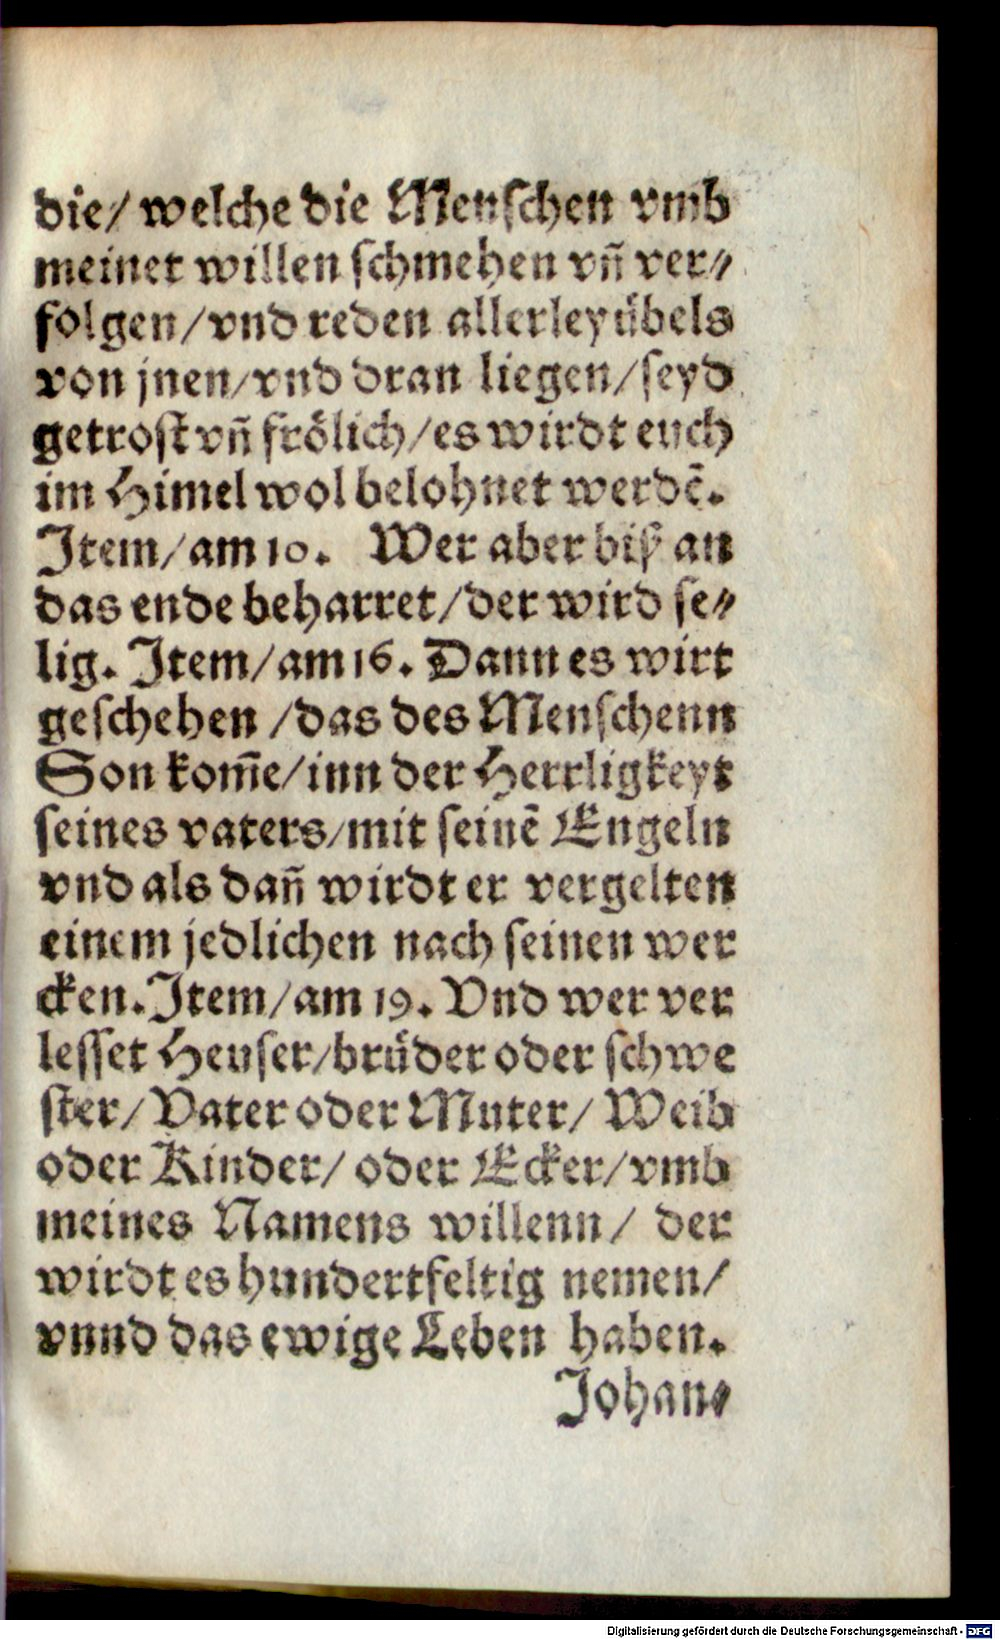 die/ welche die Menschen vmb
meinet willen schmehen vñ ver⸗
folgen/vnd reden allerley übels
von jnen/vnd dran liegen/seyd
getrost vñ frölich/es wirdt euch
im Himel wol belohnet werdē.
Item/am 10. Wer aber biß an
das ende beharret/der wird se⸗
lig. Item/am 16. Dann es wirt
geschehen /das des Menschenn
Son kom̃e/inn der Herrligkeyt
seines vaters/mit seinē Engeln
vnd als dañ wirdt er vergelten
einem jedlichen nach seinen wer
cken. Item/am 19. Vnd wer ver
lesset Heuser/brüder oder schwe
ster/ Vater oder Muter/ Weib
oder Kinder/ oder Ecker/vmb
meines Namens willenn/ der
wirdt es hundertfeltig nemen/
vnnd das ewige Leben haben.
Johan⸗
Digitalisierung gefördert durch die Deutsche Forschungsgemeinschaft - DFG